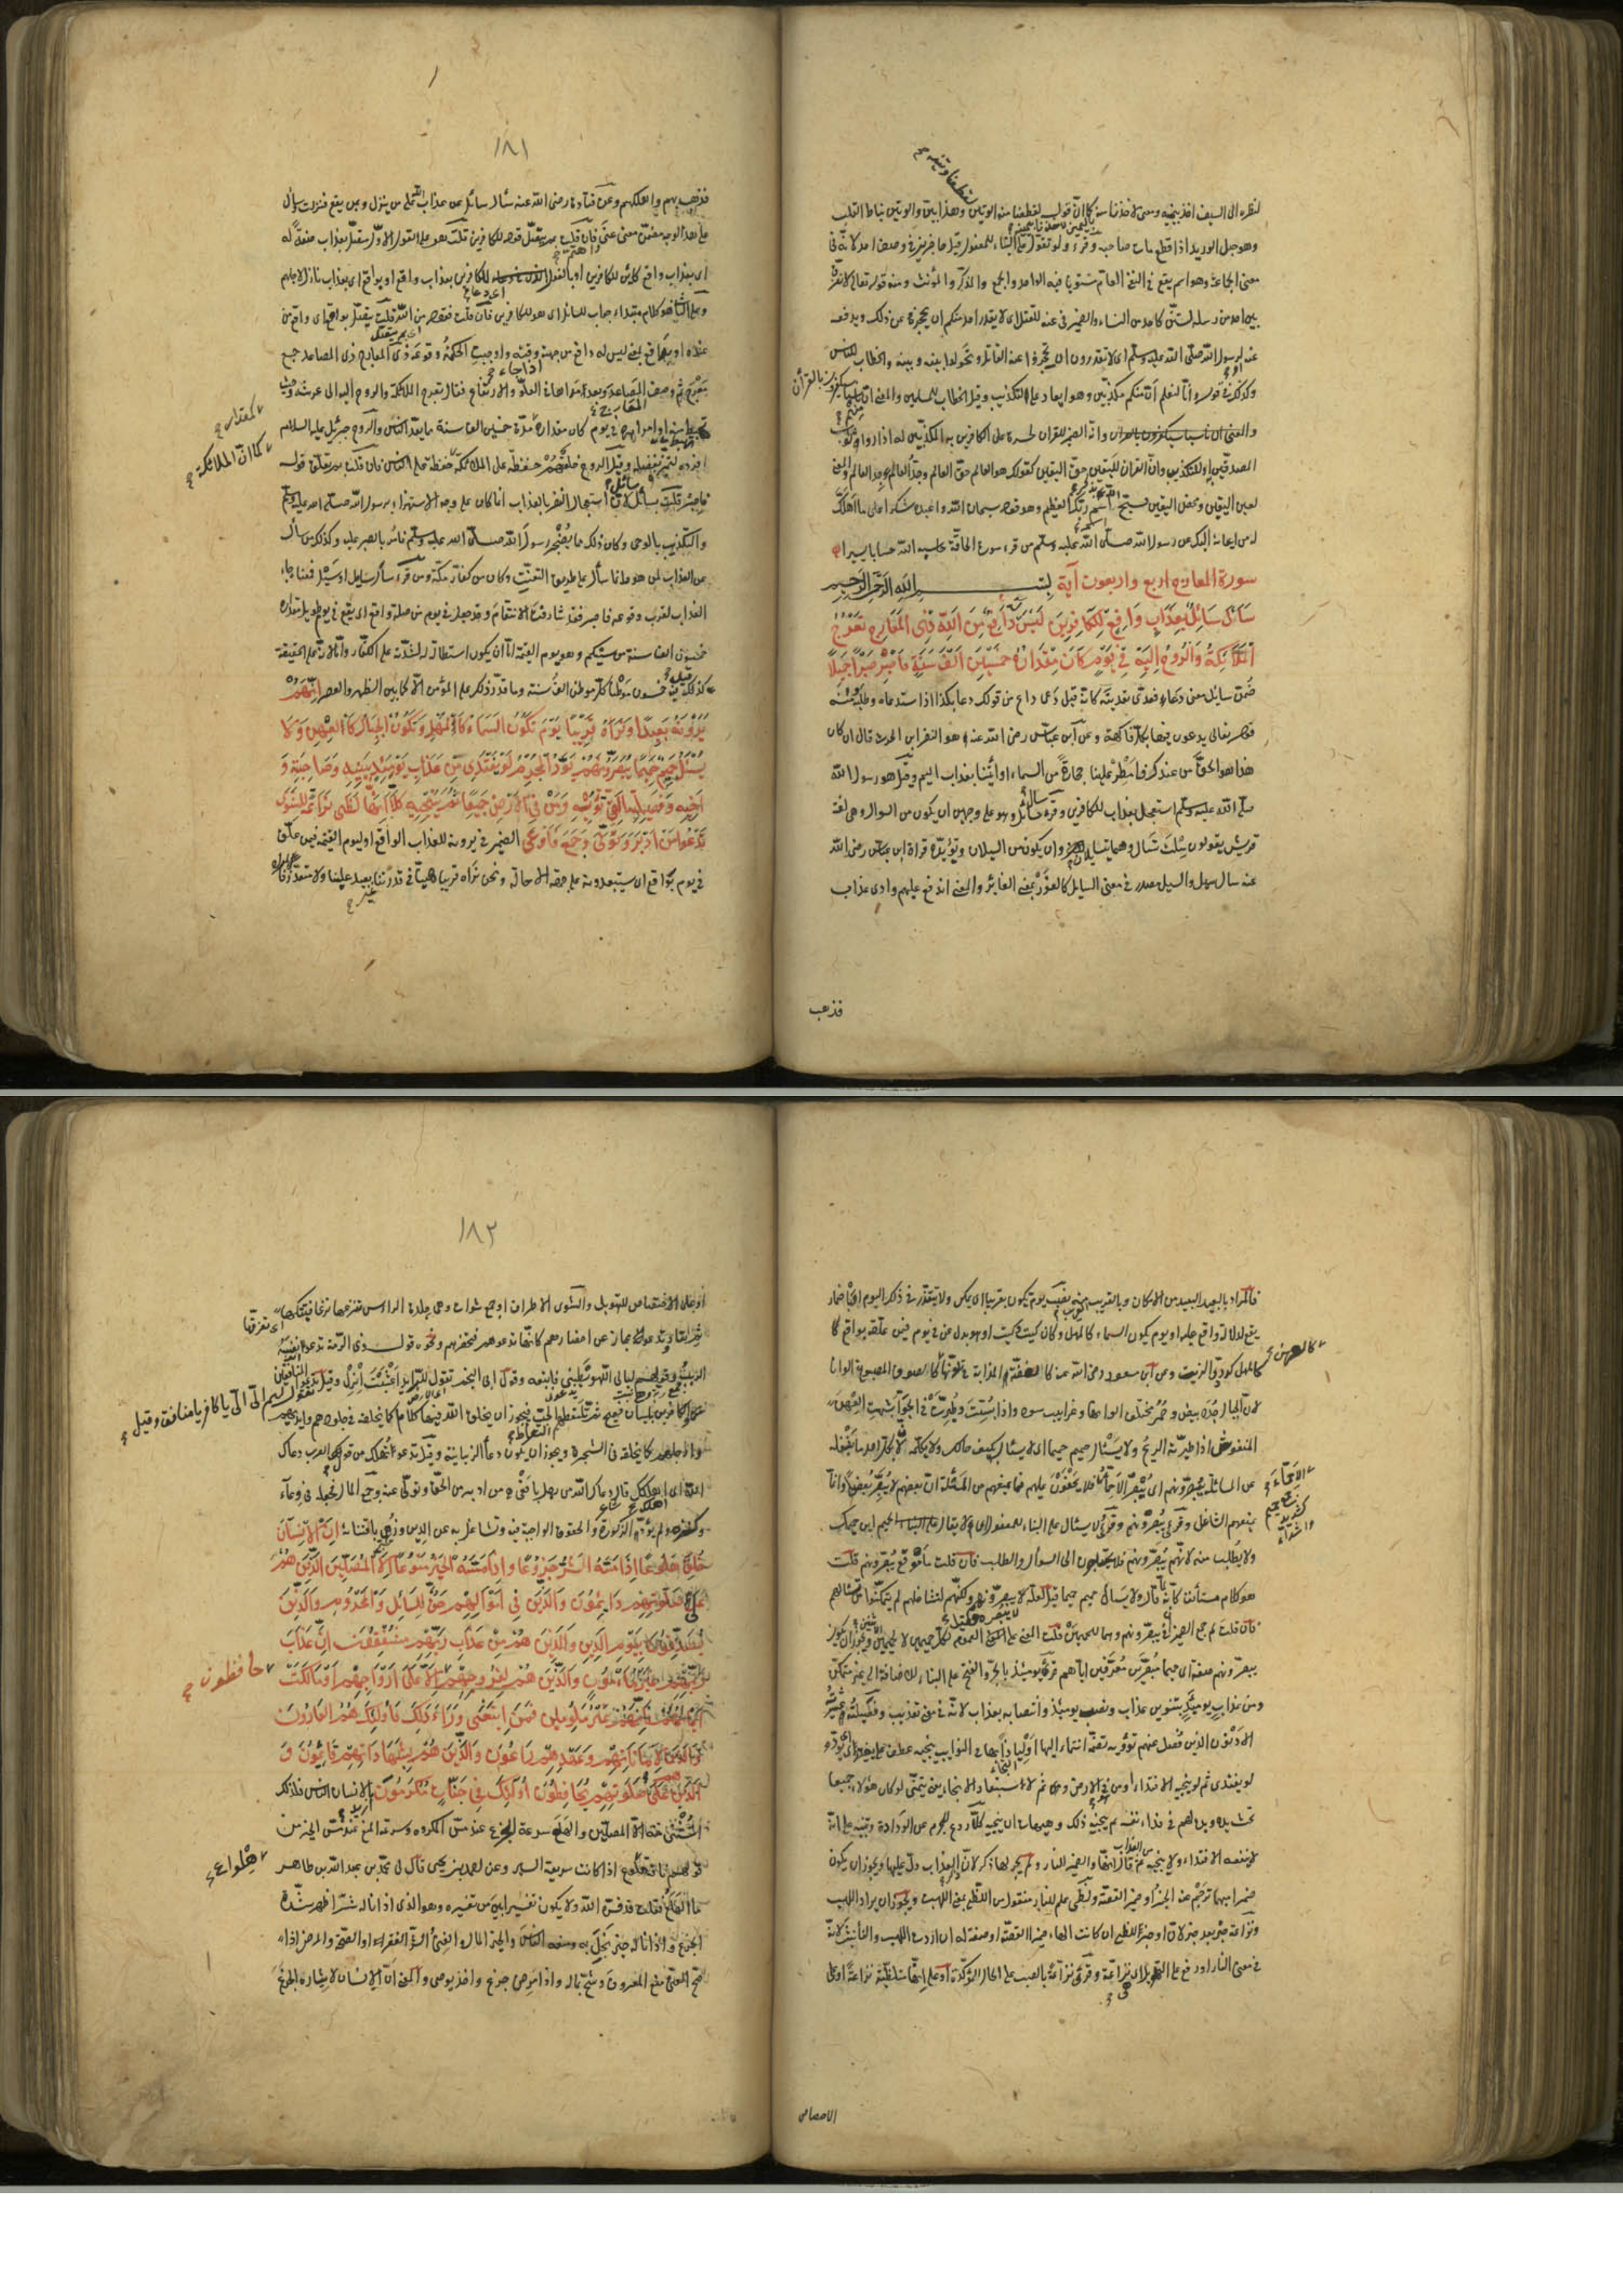 لنظره الى السيف اخذ بيمينه ومعنى لاخذنا منه كما ان قوله لقطعنا منه الوتين وهذا بين والوتين نياط القلب
وهو حبل الوريد اذا قطع مات صاحبه وقرئ ولو تقول على البناء للمفعول قيل حاجزين في وصف احد لانه في
معنى الجماعة وهو اسم يقع في النفي العام مستويا فيه الواحد والجمع والمذكر والمؤنث ومنه قوله تعالى لا نفرق
بين احد من رسله لستن كاحد من النساء والضمير في عنه للقتل اى لا يقدر احد منكم ان يحجزه عن ذلك ويدفعه
عنه او لرسول الله صلى الله عليه وسلم اى لا تقدرون ان تحجزوا عنه القاتل وتحولوا بينه وبينه والخطاب للناس
وكذلك في قوله وانا لنعلم ان منكم مكذبين وهو ايعاد على التكذيب وقيل الخطاب للمسلمين والمعنى ان
سيكفرون بالقرآن
وانه الضمير للقرآن لحسرة على الكافرين به المكذبين له اذا راوا ثواب
المصدقين او للتكذيب وان القرآن لليقين حق اليقين كقولك هو العالم حق العالم وجد العالم والمعنى
لعين اليقين ومحض اليقين فسبح باسم ربك العظيم وهو قوله سبحان الله واعبده شكرا على ما اهلك
له من ايحائه اليك عن رسول الله صلى الله عليه وسلم من قرء سورة الحاقة حاسبه الله حسابا يسيرا
سورة المعارج اربع واربعون آية بسم الله الرحمن الرحيم
سَاَلَ سَائِلٌ بِعَذَابٍ وَاقِعٍ لِلْكَافِرِينَ لَيْسَ لَهُ دَافِعٌ مِنَ اللهِ ذِى الْمَعَارِجِ تَعْرُجُ
الْمَلَائِكَةُ وَالرُّوحُ اِلَيْهِ فِى يَوْمٍ كَانَ مِقْدَارُهُ خَمْسِينَ اَلْفَ سَنَةٍ فَاصْبِرْ صَبْرًا جَمِيلًا
ضمن سائل معنى دعا فعدى تعديته كانه قيل دعا داع من قولك دعا بكذا اذا استدعاه وطلبه ومنه
قوله تعالى يدعون فيها بكل فاكهة وعن ابن عباس رضى الله عنه هو النضر ابن الحرث قال ان كان
هذا هو الحق من عندك فامطر علينا حجارة من السماء او ائتنا بعذاب اليم وقيل هو رسول الله
صلى الله عليه وسلم استعجل بعذاب للكافرين وقرء سال سائل وهو على وجهين ان يكون من السؤال وهى لغة
قريش يقولون سلت تسال وهما يتسايلان وان يكون من السيلان ويؤيده قراءة ابن عباس رضى الله
عنه سال سيل والسيل مصدر في معنى السايل كالغور بمعنى الغاير والمعنى اندفع عليهم وادى عذاب
فذهب
١٨١
فذهب بهم واهلكهم وعن قتادة رضى الله عنه سأل سائل عن عذاب الله على من ينزل وبمن يقع فنزلت وسأل
على هذا الوجه مضمن معنى عنى فان قلت بم يتصل قوله للكافرين قلت هو على القول الاول متصل بعذاب صفة له
اى بعذاب واقع كائن للكافرين او بالفعل للكافرين بعذاب واقع او بواقع اى بعذاب نازل لاجلهم
وعلى الثانى هو كلام مبتداء جواب للسائل اى هو للكافرين فان قلت فقوله من الله قلت يتصل بواقع اى واقع من
عنده او بدافع بمعنى ليس له دافع من جهته اذا جاء وقته واوجبت الحكمة وقوعه ذى المعارج ذى المصاعد جمع
معرج ثم وصف المصاعد وبعد مداها في العلو والارتفاع فقال تعرج الملائكة والروح اليه الى عرشه وحيث
تهبط منه اوامره في يوم كان مقداره كمقدار مدة خمسين الف سنة مما يعد الناس والروح جبرئيل عليه السلام
افرده لتميزه بفضله وقيل الروح خلق هم حفظة على الملائكة كما ان الملائكة حفظة على الناس فان قلت بم يتعلق قوله
فاصبر قلت بسأل سائل لان استعجال النضر بالعذاب انما كان على وجه الاستهزاء برسول الله صلى الله عليه وسلم
والتكذيب بالوحى وكان ذلك مما يضجر رسول الله صلى الله عليه وسلم فامر بالصبر عليه وكذلك من سأل
عن العذاب لمن هو فانما سأل على طريق التعنت وكان من كفار مكة ومن قرء سال سائل او سيل فمعناه جاء
العذاب لقرب وقوعه فاصبر فقد شارفت الانتقام وقد جعل في يوم من صلة واقع اى يقع في يوم طويل مقداره
خمسون الف سنة من سنيكم وهو يوم القيمة اما ان يكون استطالة له لشدته على الكفار واما لانه على الحقيقة
كذلك قيل فيه خمسون موطنا كل موطن الف سنة وما قدر ذلك على المؤمن الا كما بين الظهر والعصر اِنَّهُمْ
يَرَوْنَهُ بَعِيدًا وَنَرَاهُ قَرِيبًا يَوْمَ تَكُونُ السَّمَاءُ كَالْمُهْلِ وَتَكُونُ الْجِبَالُ كَالْعِهْنِ وَلَا
يَسْئَلُ حَمِيمٌ حَمِيمًا يُبَصَّرُونَهُمْ يَوَدُّ الْمُجْرِمُ لَوْ يَفْتَدِى مِنْ عَذَابِ يَوْمِئِذٍ بِبَنِيهِ وَصَاحِبَتِهِ وَ
اَخِيهِ وَفَصِيلَتِهِ الَّتِى تُؤْوِيهِ وَمَنْ فِى الْاَرْضِ جَمِيعًا ثُمَّ يُنْجِيهِ كَلَّا اِنَّهَا لَظَى نَزَّاعَةً لِلشَّوَى
تَدْعُوا مَنْ اَدْبَرَ وَتَوَلَّى وَجَمَعَ فَاَوْعَى الضمير في يرونه للعذاب الواقع او ليوم القيمة فيمن علق
في يوم بواقع اى يستبعدونه على جهة الاحالة ونحن نراه قريبا هينا في قدرتنا غير بعيد علينا ولا متعذر
فالمراد بالبعيد البعيد من الامكان وبالقريب القريب منه نصب يوم يكون بقريبا اى يمكن ولا يتعذر في ذلك اليوم او باضمار
يقع لدلالة واقع عليه او يوم يكون السماء كالمهل وكان كيت وكيت او هو بدل عن في يوم فيمن علقه بواقع
كالمهل كدردى الزيت وعن ابن مسعود رضى الله عنه كالفضة المذابة في تلونها كالعهن كالصوف المصبوغ الوانا
لان الجبال جدد بيض وحمر مختلف الوانها وغرابيب سود واذا بست وطيرت في الجو اشبهت العهن
المنفوش اذا طيرته الريح ولا يسئل حميم حميما اى لا يسئال بكيف حالك ولا يكلمه لان بكل احد ما يشغله
عن المسائلة يبصرونهم اى يبصر الاحماء الاحماء فلا يخفون عليهم فما يمنعهم من المسئلة ان بعضهم لا يبصر بعضا وانما
يمنعهم التشاغل وقرئ يبصرونهم وقرئ ولا يسئال على البناء للمفعول اى لا يقال لحميم اين حميمك
ولا يطلب منه لانهم يبصرونهم فلا يحتاجون الى السوال والطلب فان قلت ما موقع يبصرونهم قلت
هو كلام مستأنف كانه لما قال ولا يسال حميم حميما قيل لعله لا يبصره فقيل يبصرونهم ولكنهم لتشاغلهم لم يتمكنوا من تسائلهم
فان قلت لم جمع الضميران في يبصرونهم وهما للحميمين قلت المعنى على العموم لكل حميمين لا لحميمين اثنين ويجوز ان يكون
يبصرونهم صفة اى حميما مبصرين معرفين اياهم قرئ يومئذ بالجر والفتح على البناء للاضافة الى غير متمكن
ومن عذاب يومئذ بتنوين عذاب ونصب يومئذ وانتصابه بعذاب لانه في معنى تعذيب وفصيلته عشيرته
الادنون الذين فصل عنهم تؤويه تضمه انتماء اليها او لياذا بها في النوايب ينجيه عطف على يفتدى اى يود
لو يفتدى ثم لو ينجيه الافتداء او من في الارض وثم لاستبعاد الانجاء يعنى يتمنى لو كان هؤلاء جميعا
تحت يده وبذلهم في فداء نفسه ثم ينجيه ذلك وهيهات ان ينجيه كلا ردع للمجرم عن الودادة وتنبيه على انه
لا ينفعه الافتداء ولا ينجيه من العذاب ثم قال انها والضمير للنار ولم يجر لها ذكر لان ذكر العذاب دل عليها ويجوز ان يكون
ضميرا مبهما ترجم عنه الخبر او ضمير القصة ولظى علم للنار منقول من اللظى بمعنى اللهب ويجوز ان يراد اللهب
ونزاعة خبر بعد خبر لان او خبر للظى ان كانت الهاء ضمير القصة او صفة له ان اردت اللهب والتأنيث لانه
في معنى النار او رفع على التهويل اى هى نزاعة وقرئ نزاعة بالنصب على الحال المؤكدة او على انها متلظية نزاعة او على
الاختصاص
١٨٢
او على الاختصاص للتهويل والشوى الاطراف او جمع شواة وهى جلدة الراس تنزعها نزعا فتبتكها
ثم تعاد وتدعوا مجاز عن احضارهم كانها تدعوهم فتحضرهم ونحوه قول ذى الرمة تدعو انفه
الربب وقوله ليالى اللهو يطبينى فاتبعه وقول ابى النجم تقول للرائد اعشبت انزل وقيل تقول لهم الى الى يا كافر يا منافق وقيل
تدعو المنافقين والكافرين بلسان فصيح ثم تلتقطهم التقاط الحب فيجوز ان يخلق الله فيها كلاما كما يخلقه في جلودهم وايديهم
وارجلهم وكما خلقه في الشجرة ويجوز ان يكون دعاء الزبانية وقيل تدعوا تهلك من قول العرب دعاك
الله اى اهلكك قال دعاك الله من رجل بافعى من ادبر عن الحق وتولى عنه وجمع المال فجعله في وعاء
وكنزه ولم يؤد الزكوة والحقوق الواجبة فيه وتشاغل به عن الدين وزهى باقتنائه اِنَّ الْاِنْسَانَ
خُلِقَ هَلُوعًا اِذَا مَسَّهُ الشَّرُّ جَزُوعًا وَاِذَا مَسَّهُ الْخَيْرُ مَنُوعًا اِلَّا الْمُصَلِّينَ الَّذِينَ هُمْ
عَلَى صَلَوتِهِمْ دَائِمُونَ وَالَّذِينَ فِى اَمْوَالِهِمْ حَقٌّ لِلسَّائِلِ وَالْمَحْرُومِ وَالَّذِينَ
يُصَدِّقُونَ بِيَوْمِ الدِّينِ وَالَّذِينَ هُمْ مِنْ عَذَابِ رَبِّهِمْ مُشْفِقُونَ اِنَّ عَذَابَ
رَبِّهِمْ غَيْرُ مَأْمُونٍ وَالَّذِينَ هُمْ لِفُرُوجِهِمْ حافظون اِلَّا عَلَى اَزْوَاجِهِمْ اَوْ مَا مَلَكَتْ
اَيْمَانُهُمْ فَاِنَّهُمْ غَيْرُ مَلُومِينَ فَمَنِ ابْتَغَى وَرَاءَ ذَلِكَ فَاُولَئِكَ هُمُ الْعَادُونَ
وَالَّذِينَ هُمْ لِاَمَانَاتِهِمْ وَعَهْدِهِمْ رَاعُونَ وَالَّذِينَ هُمْ بِشَهَادَاتِهِمْ قَائِمُونَ وَ
الَّذِينَ هُمْ عَلَى صَلَوتِهِمْ يُحَافِظُونَ اُولَئِكَ فِى جَنَّاتٍ مُكْرَمُونَ اريد بالانسان الناس فلذلك
استثنى منه الا المصلين والهلع سرعة الجزع عند مس المكروه وسرعة المنع عند مس الخير من
قولهم ناقة هلواع اذا كانت سريعة السير وعن احمد بن يحيى قال لى محمد بن عبد الله بن طاهر
ما الهلع فقلت قد فسره الله ولا يكون تفسير ابين من تفسيره وهو الذى اذا ناله شر اظهر شدة
الجزع واذا ناله خير بخل به ومنعه الناس والخير المال والغنى والشر الفقر او الصحة والمرض اذا
صح الغنى منع المعروف وشح بماله واذا مرض جزع واخذ يوصى والمعنى ان الانسان لايثاره الجزع